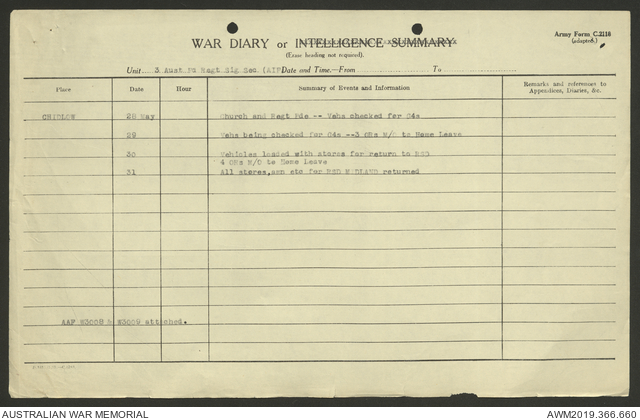 WAR DIARY or INTELLIGENCE SUMMARY
(Erase heading not required).
Army Form C.2118
(adapted.)
Unit 3 Aust Fd Regt Sig Sec (AIF) Date and Time.—From To
Place Date Hour Summary of Events and Information Remarks and references to Appendices, Diaries, &c.
CHIDLOW 28 May Church and Regt Pde -- Vehs checked for 04s
29 Vehs being checked for 04s --3 ORs M/O to Home Leave
30 Vehicles loaded with stores for return to RSD
4 ORs M/O to Home Leave
31 All stores, amn etc for RSD MIDLAND returned
AAF W3008 & W3009 attached.
AUSTRALIAN WAR MEMORIAL AWM2019.366.660